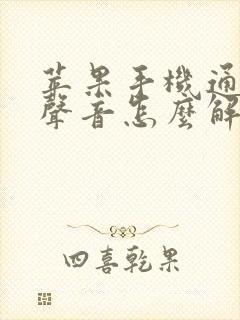 苹果手機通
聲音怎麼解
四喜乾果